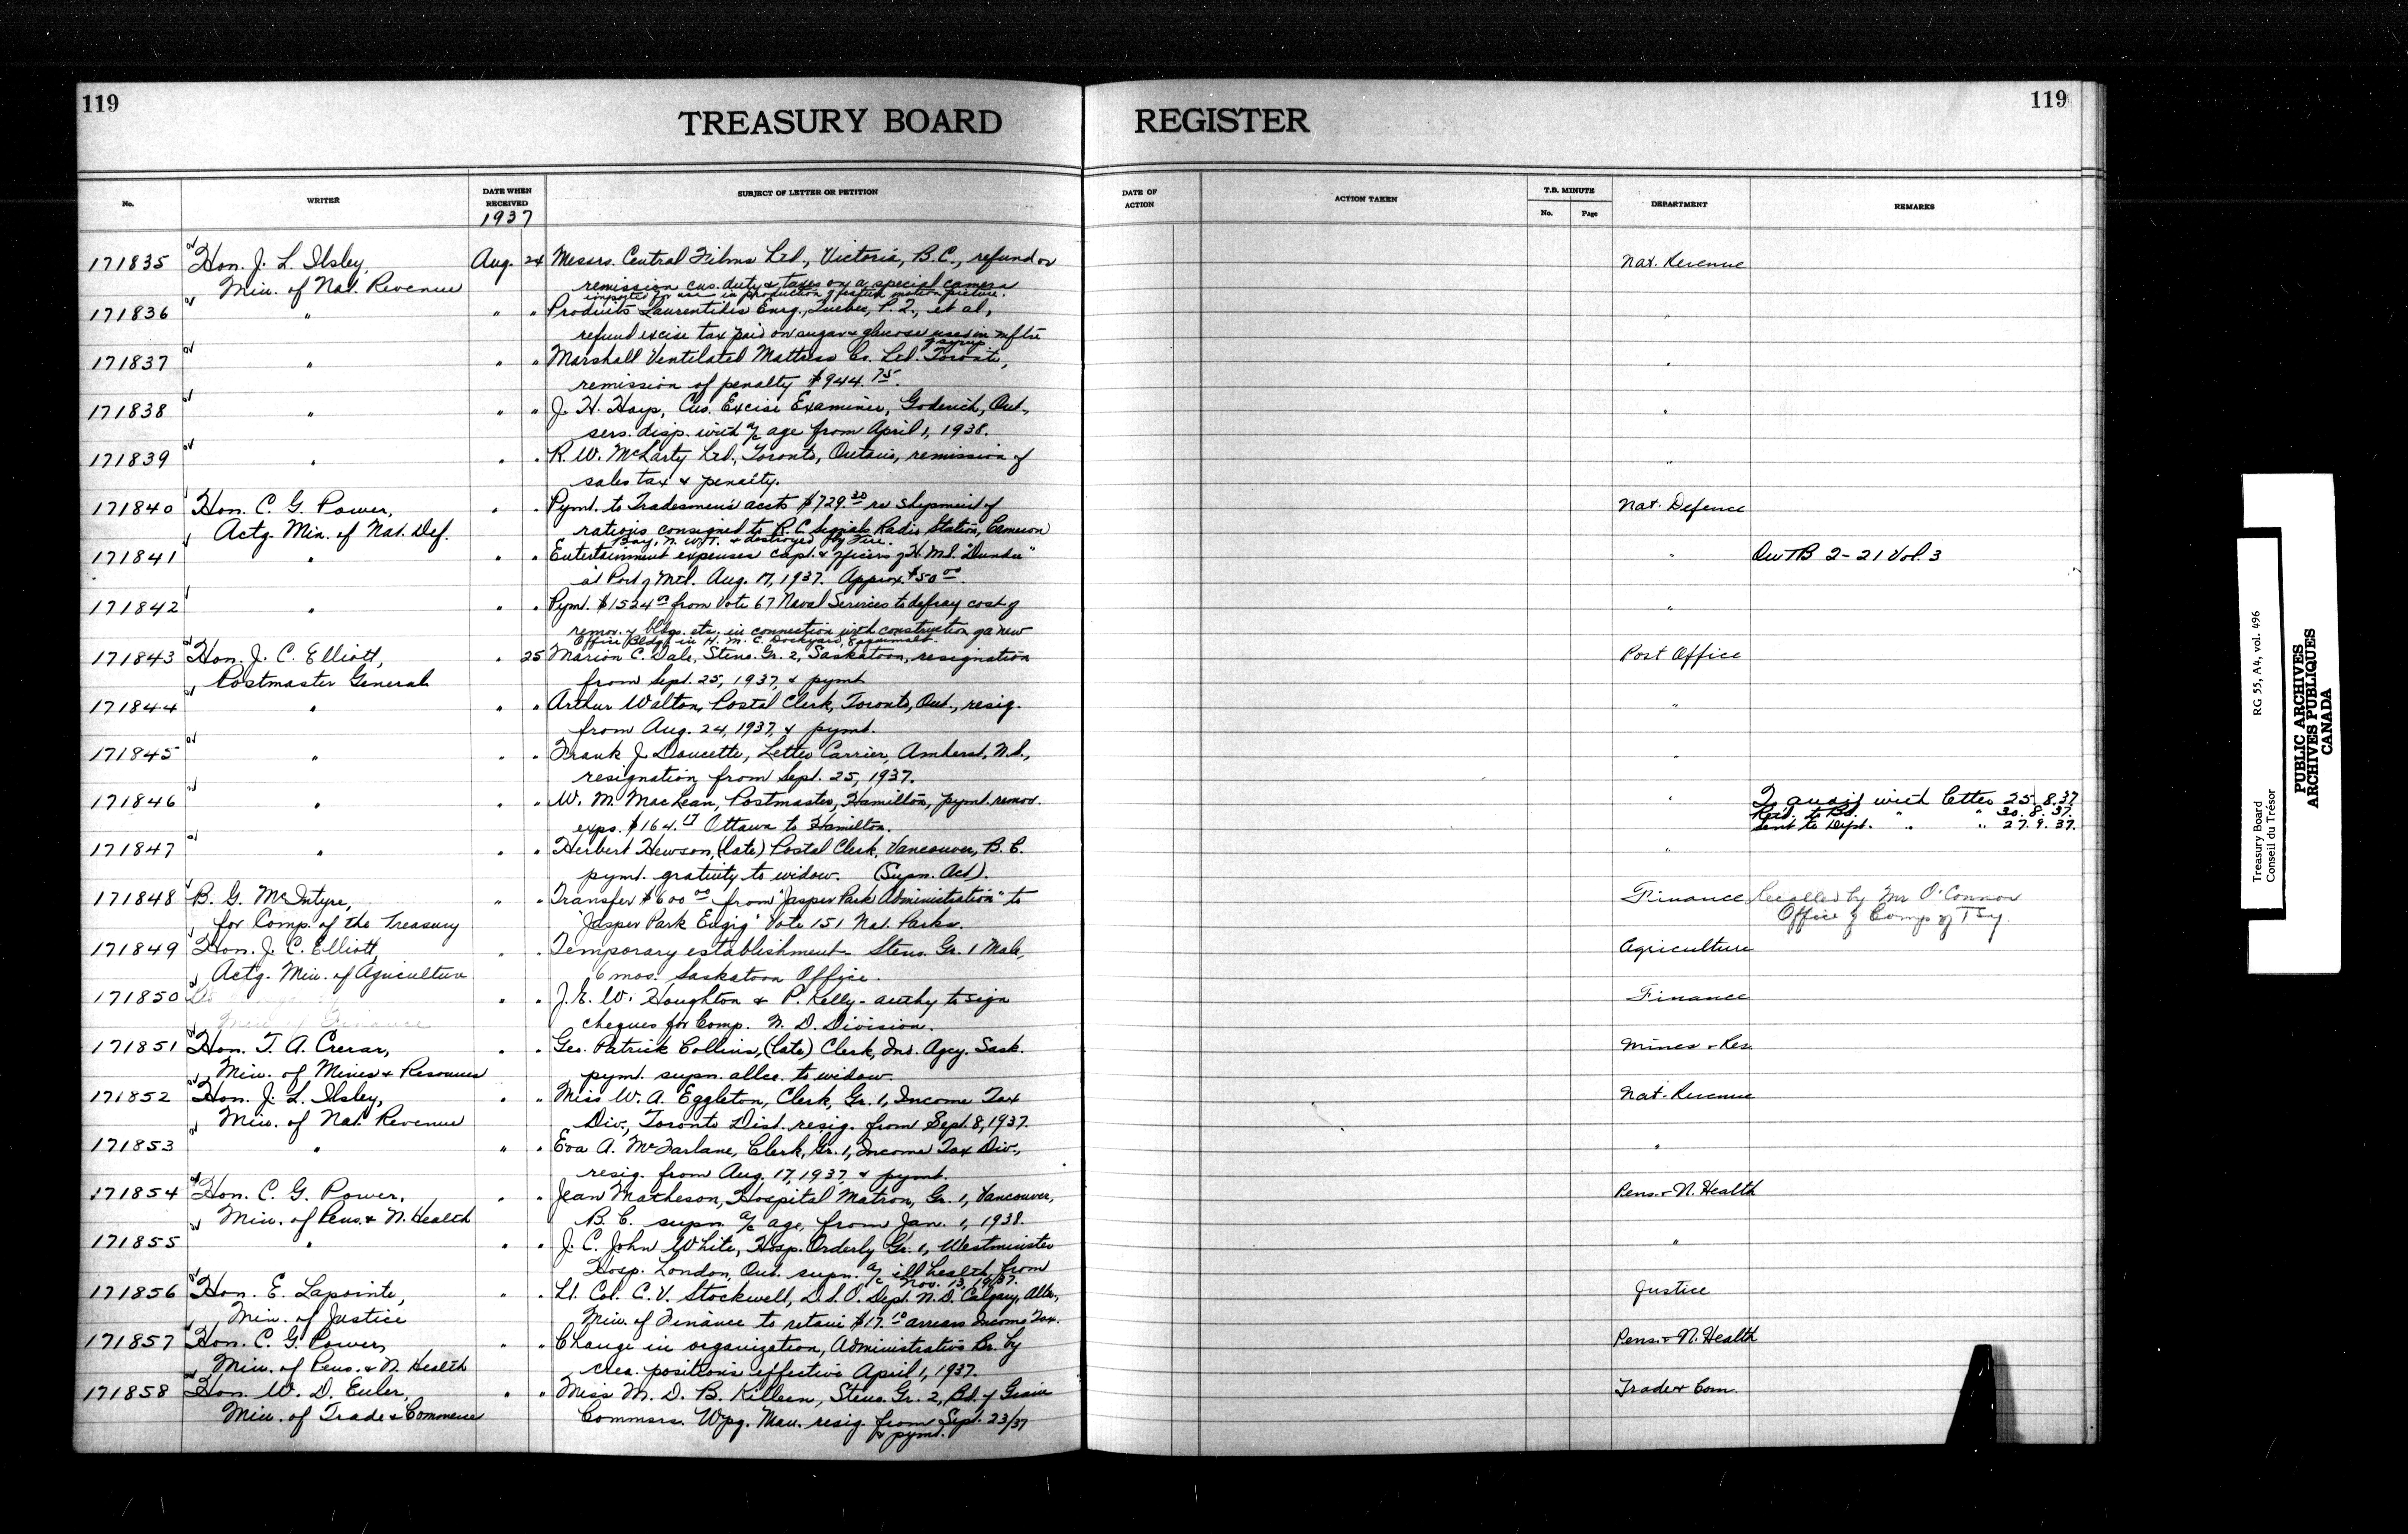 119
119
TREASURY BOARD REGISTER
No.
WRITER
DATE WHEN RECEIVED
1937
SUBJECT OF LETTER OR PETITION
DATE OF ACTION
ACTION TAKEN
T.B. MINUTE
No.
Page
DEPARTMENT
REMARKS
171835 Hon. J. L. Ilsley, Aug. 24 Messrs. Central Films Ltd., Victoria, B.C., refund or Nat. Revenue
Min. of Nat. Revenue remission cus. duty & taxes on a special camera
imported for use in production of motion picture.
171836 " " " Produits Laurentides Enrg., Quebec, P.Q., et al, "
refund excise tax paid on sugar & glucose used in mftre
of syrup
171837 " " " Marshall Ventilated Mattress Co. Ltd. Toronto, "
remission of penalty $944.75.
171838 " " " J. H. Hays, Cus. Excise Examiner, Goderich, Ont., "
sers. disp. with a/c age from April 1, 1938.
171839 " " " R. W. McLarty Ltd., Toronto, Ontario, remission of "
sales tax & penalty.
171840 Hon. C. G. Power, " " Pymt. to Tradesmen's accts $729.30 re shipment of Nat. Defence
Actg. Min. of Nat. Def. rations consigned to R.C. Signals Radio Station, Cameron
Bay, N.W.T. & destroyed by Fire.
171841 " " " Entertainment expenses Capt. & officers of H.M.S. "Dundee" " Our TB 2-21 Vol. 3
at Port of Mtl. Aug. 17, 1937. Approx. $50.00.
171842 " " " Pymt. $1524.00 from Vote 67 Naval Services to defray cost of "
remov. of bldgs. etc. in connection with construction of a new
Office Bldg. in H.M.C. Dockyard, Esquimalt.
171843 Hon. J. C. Elliott, " 25 Marion C. Dale, Steno. Gr. 2, Saskatoon, resignation Post Office
Postmaster General from Sept. 25, 1937, & pymt.
171844 " " " Arthur Walton, Postal Clerk, Toronto, Ont., resig. "
from Aug. 24, 1937, & pymt.
171845 " " " Frank J. Doucette, Letter Carrier, Amherst, N.S., "
resignation from Sept. 25, 1937.
171846 " " " W. M. MacLean, Postmaster, Hamilton, pymt. remov. " with letter 25.8.37.
exps. $164.17 Ottawa to Hamilton. Retd. to Bd. " " 30.8.37.
Sent to Dept. " " 27.9.37.
171847 " " " Herbert Hewson, (late) Postal Clerk, Vancouver, B.C. "
pymt. gratuity to widow. (Supn. Act).
171848 B. G. McIntyre, " " Transfer $600.00 from "Jasper Park Administration" to Finance Recalled by Mr O'Connor
for Comp. of the Treasury "Jasper Park Engig" Vote 151 Nat. Parks. Office of Comp of Tsy.
171849 Hon. J. C. Elliott, " " Temporary establishment - Steno. Gr. 1 Male, Agriculture
Actg. Min. of Agriculture 6 mos. Saskatoon Office.
171850 " " J. E. W. Houghton & P. Kelly - authy to sign Finance
cheques for Comp. N. D. Division.
171851 Hon. T. A. Crerar, " " Geo. Patrick Collins, (late) Clerk, Ind. Agcy. Sask. Mines & Res.
Min. of Mines & Resources pymt. supn. allce. to widow.
171852 Hon. J. L. Ilsley, " " Miss W. A. Eggleton, Clerk, Gr. 1, Income Tax Nat. Revenue
Min. of Nat. Revenue Div., Toronto Dist. resig. from Sept. 8, 1937.
171853 " " " Eva A. McFarlane, Clerk, Gr. 1, Income Tax Div., "
resig. from Aug. 17, 1937, & pymt.
171854 Hon. C. G. Power, " " Jean Matheson, Hospital Matron, Gr. 1, Vancouver, Pens. & N. Health
Min. of Pens. & N. Health B.C. supn. a/c age, from Jan. 1, 1938.
171855 " " " J. C. John White, Hosp. Orderly Gr. 1, Westminster "
Hosp. London, Ont. supn. a/c ill health, from
Nov. 13, 1937.
171856 Hon. E. Lapointe, " " Lt. Col. C. V. Stockwell, D.S.O. Dept. N.D. Calgary, Alta., Justice
Min. of Justice Min. of Finance to retain $17.10 arrears Income Tax.
171857 Hon. C. G. Power, " " Change in organization, Administrative Br. by Pens. & N. Health
Min. of Pens. & N. Health crea. positions effective April 1, 1937.
171858 Hon. W. D. Euler, " " Miss M. D. B. Killeen, Steno. Gr. 2, Bd. of Grain Trade & Com.
Min. of Trade & Commerce Commsrs. Wpg. Man. resig. from Sept. 23/37
& pymt.
Treasury Board RG 55, A4, vol. 496
Conseil du Trésor
PUBLIC ARCHIVES
ARCHIVES PUBLIQUES
CANADA